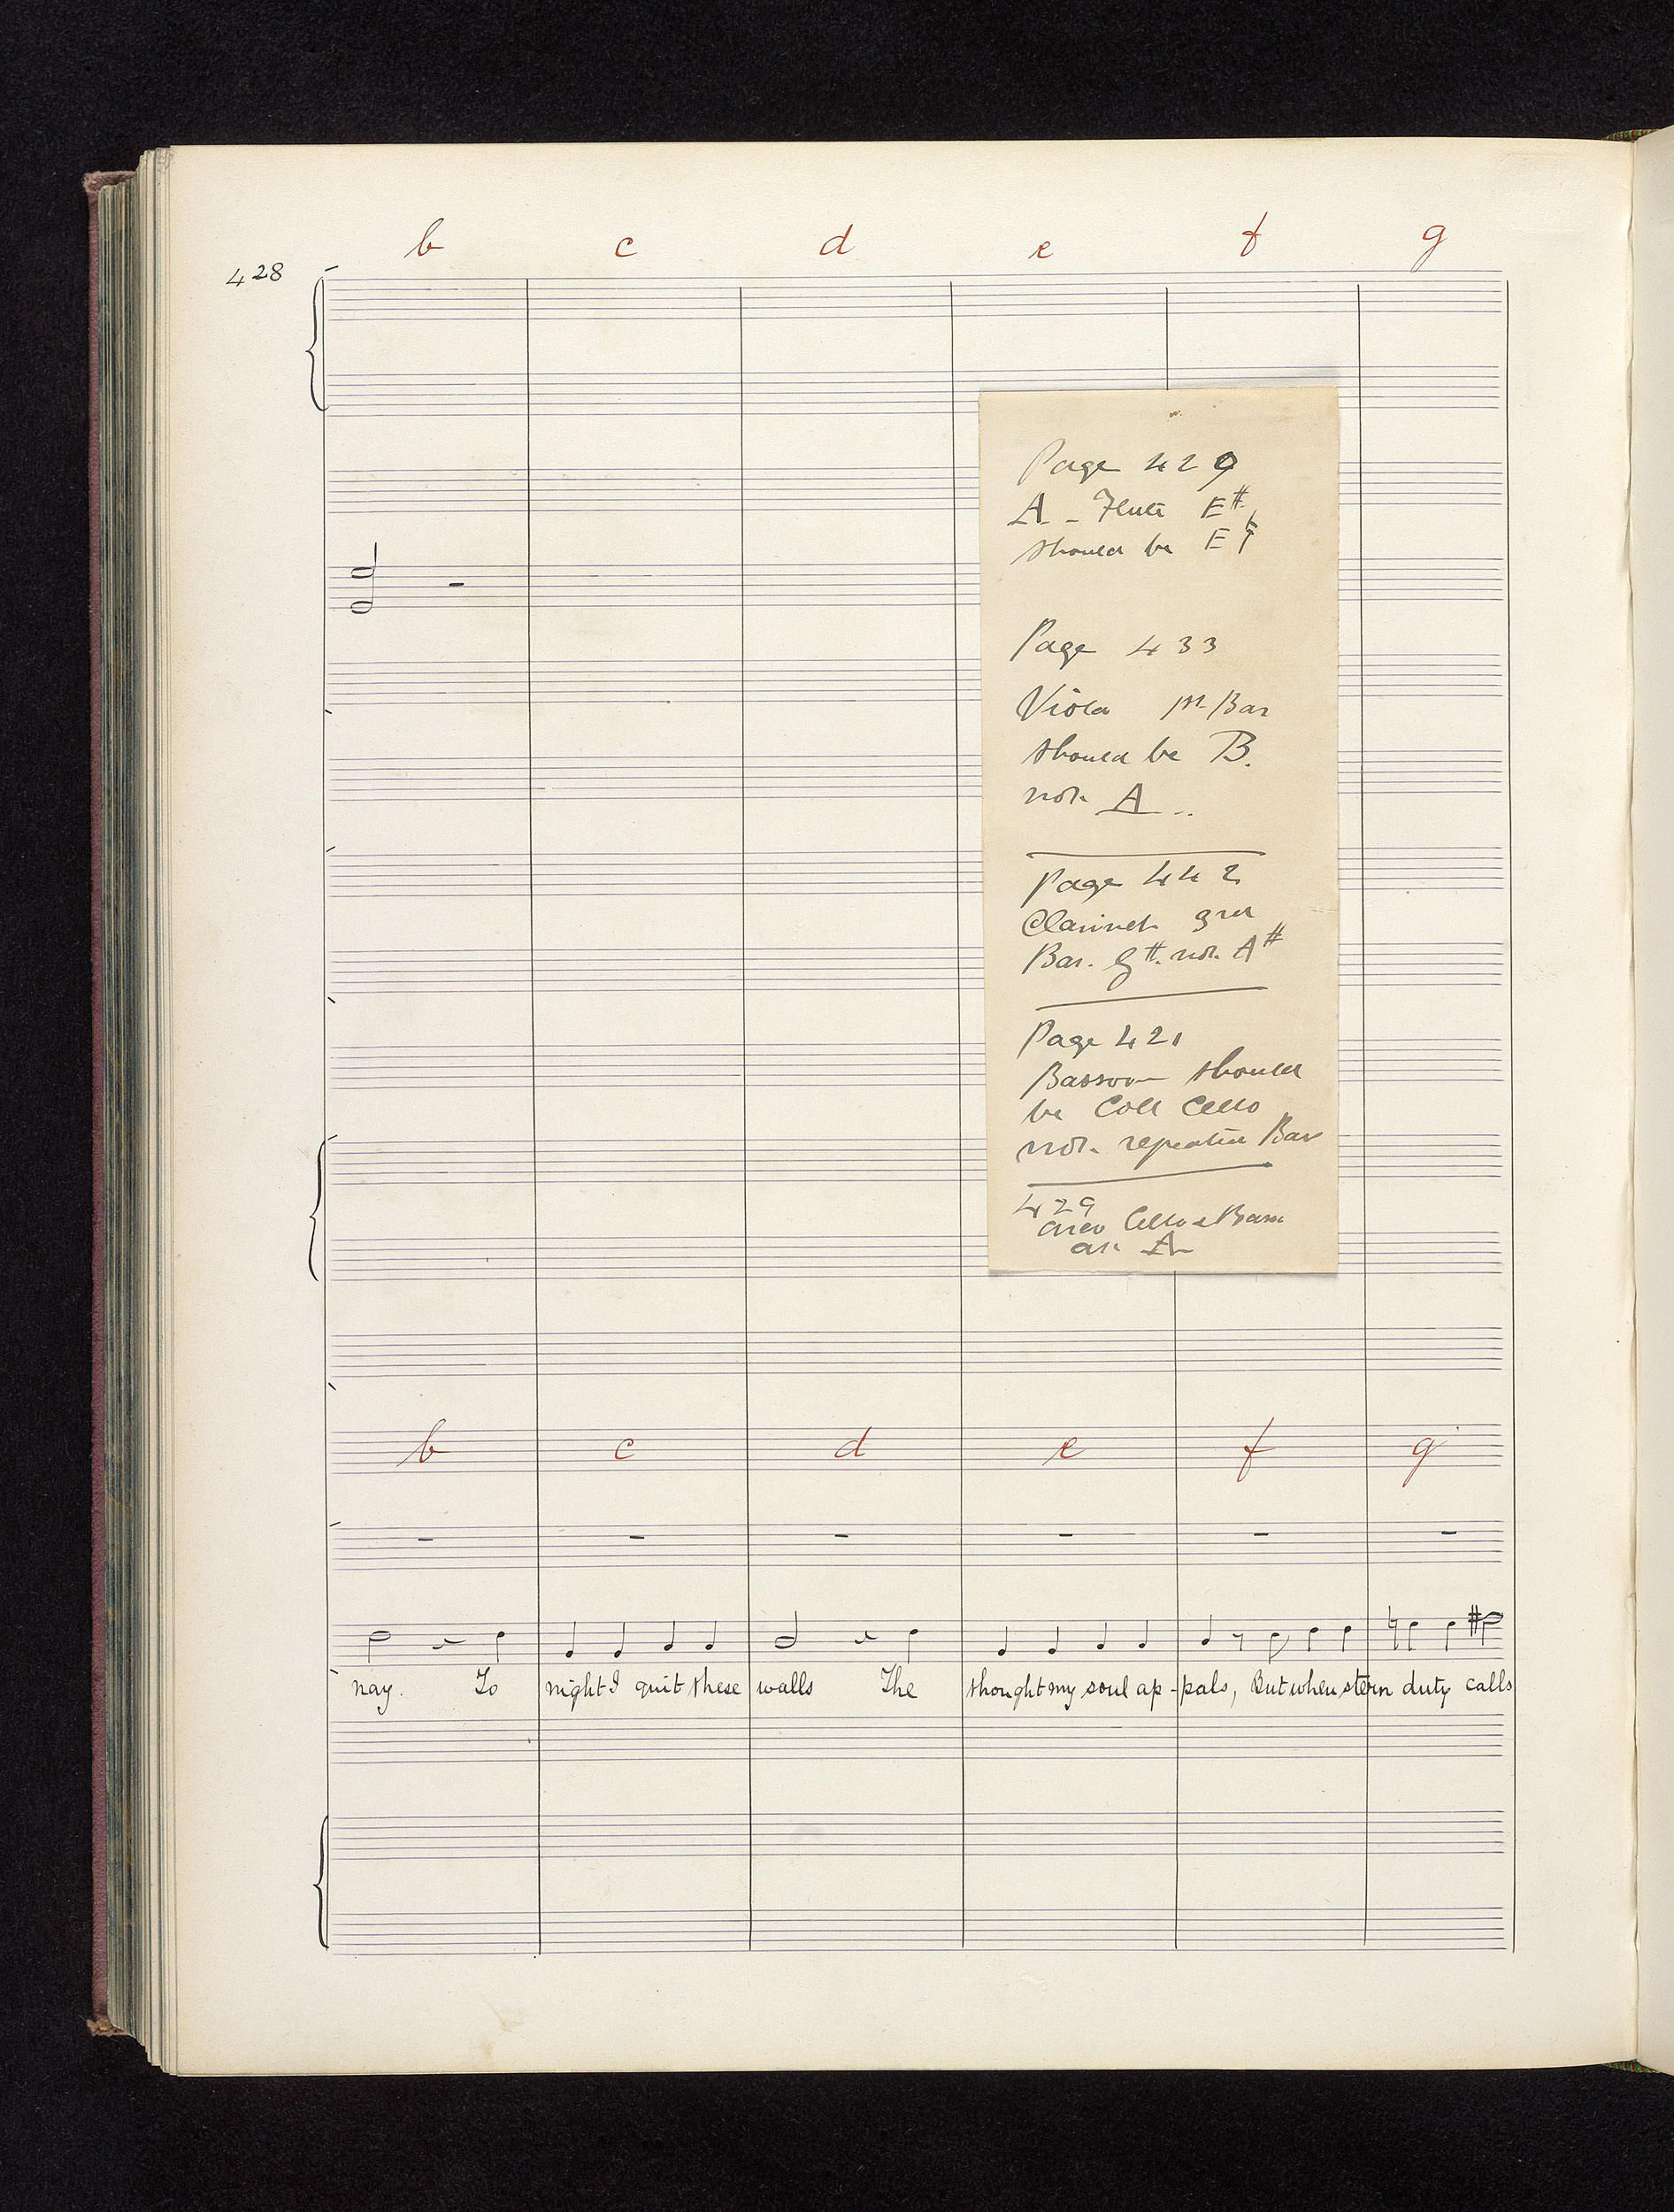 b c d e f g
428
Page 429
A - Flute E#
should be E♮
Page 433
Viola 1st Bar
should be B.
not A..
Page 442
Clarinet 3rd
Bar. G#. not A#
Page 421
Bassoon should
be Coll Cello
not repeated Bar
429
arco Cello & Bass
at A
b c d e f g
nay. To night I quit these walls The thought my soul ap-pals, But when stern duty calls